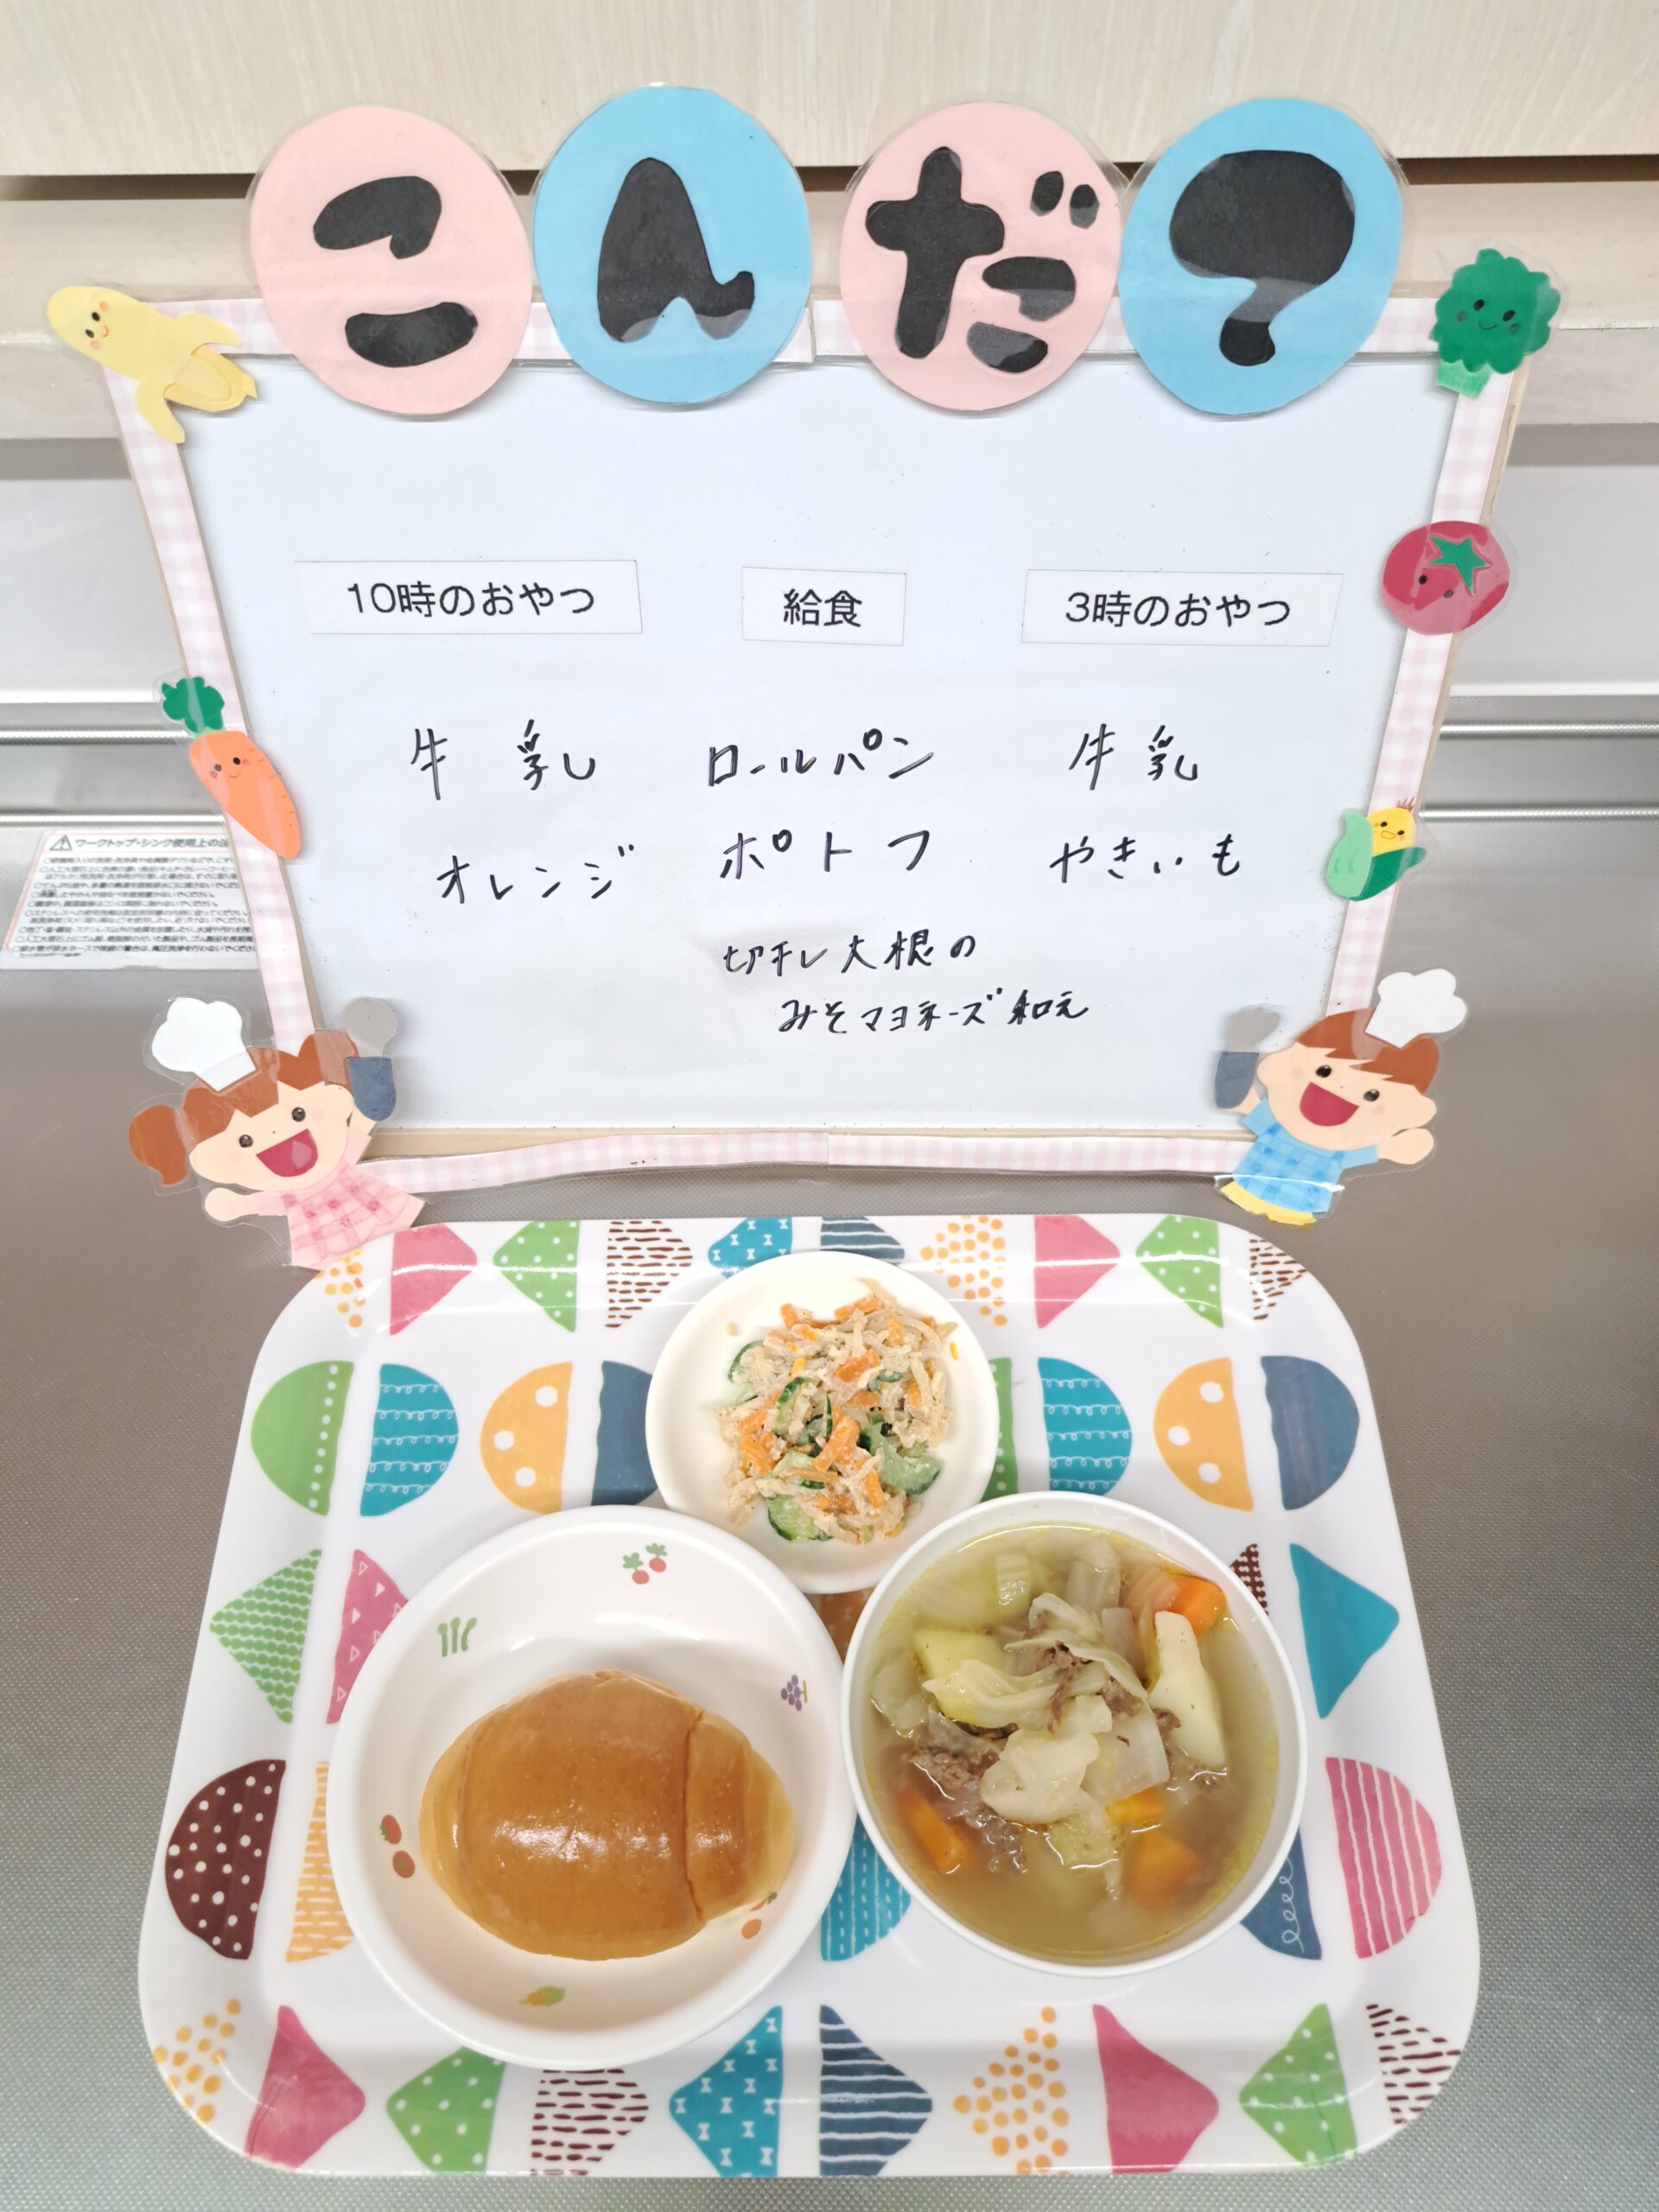 こんだ?
10時のおやつ
牛乳
オレンジ
給食
ロールパン
ポトフ
切干し大根の
みそマヨネーズ和え
3時のおやつ
牛乳
やきいも
ワークトップ・シンク使用上の注